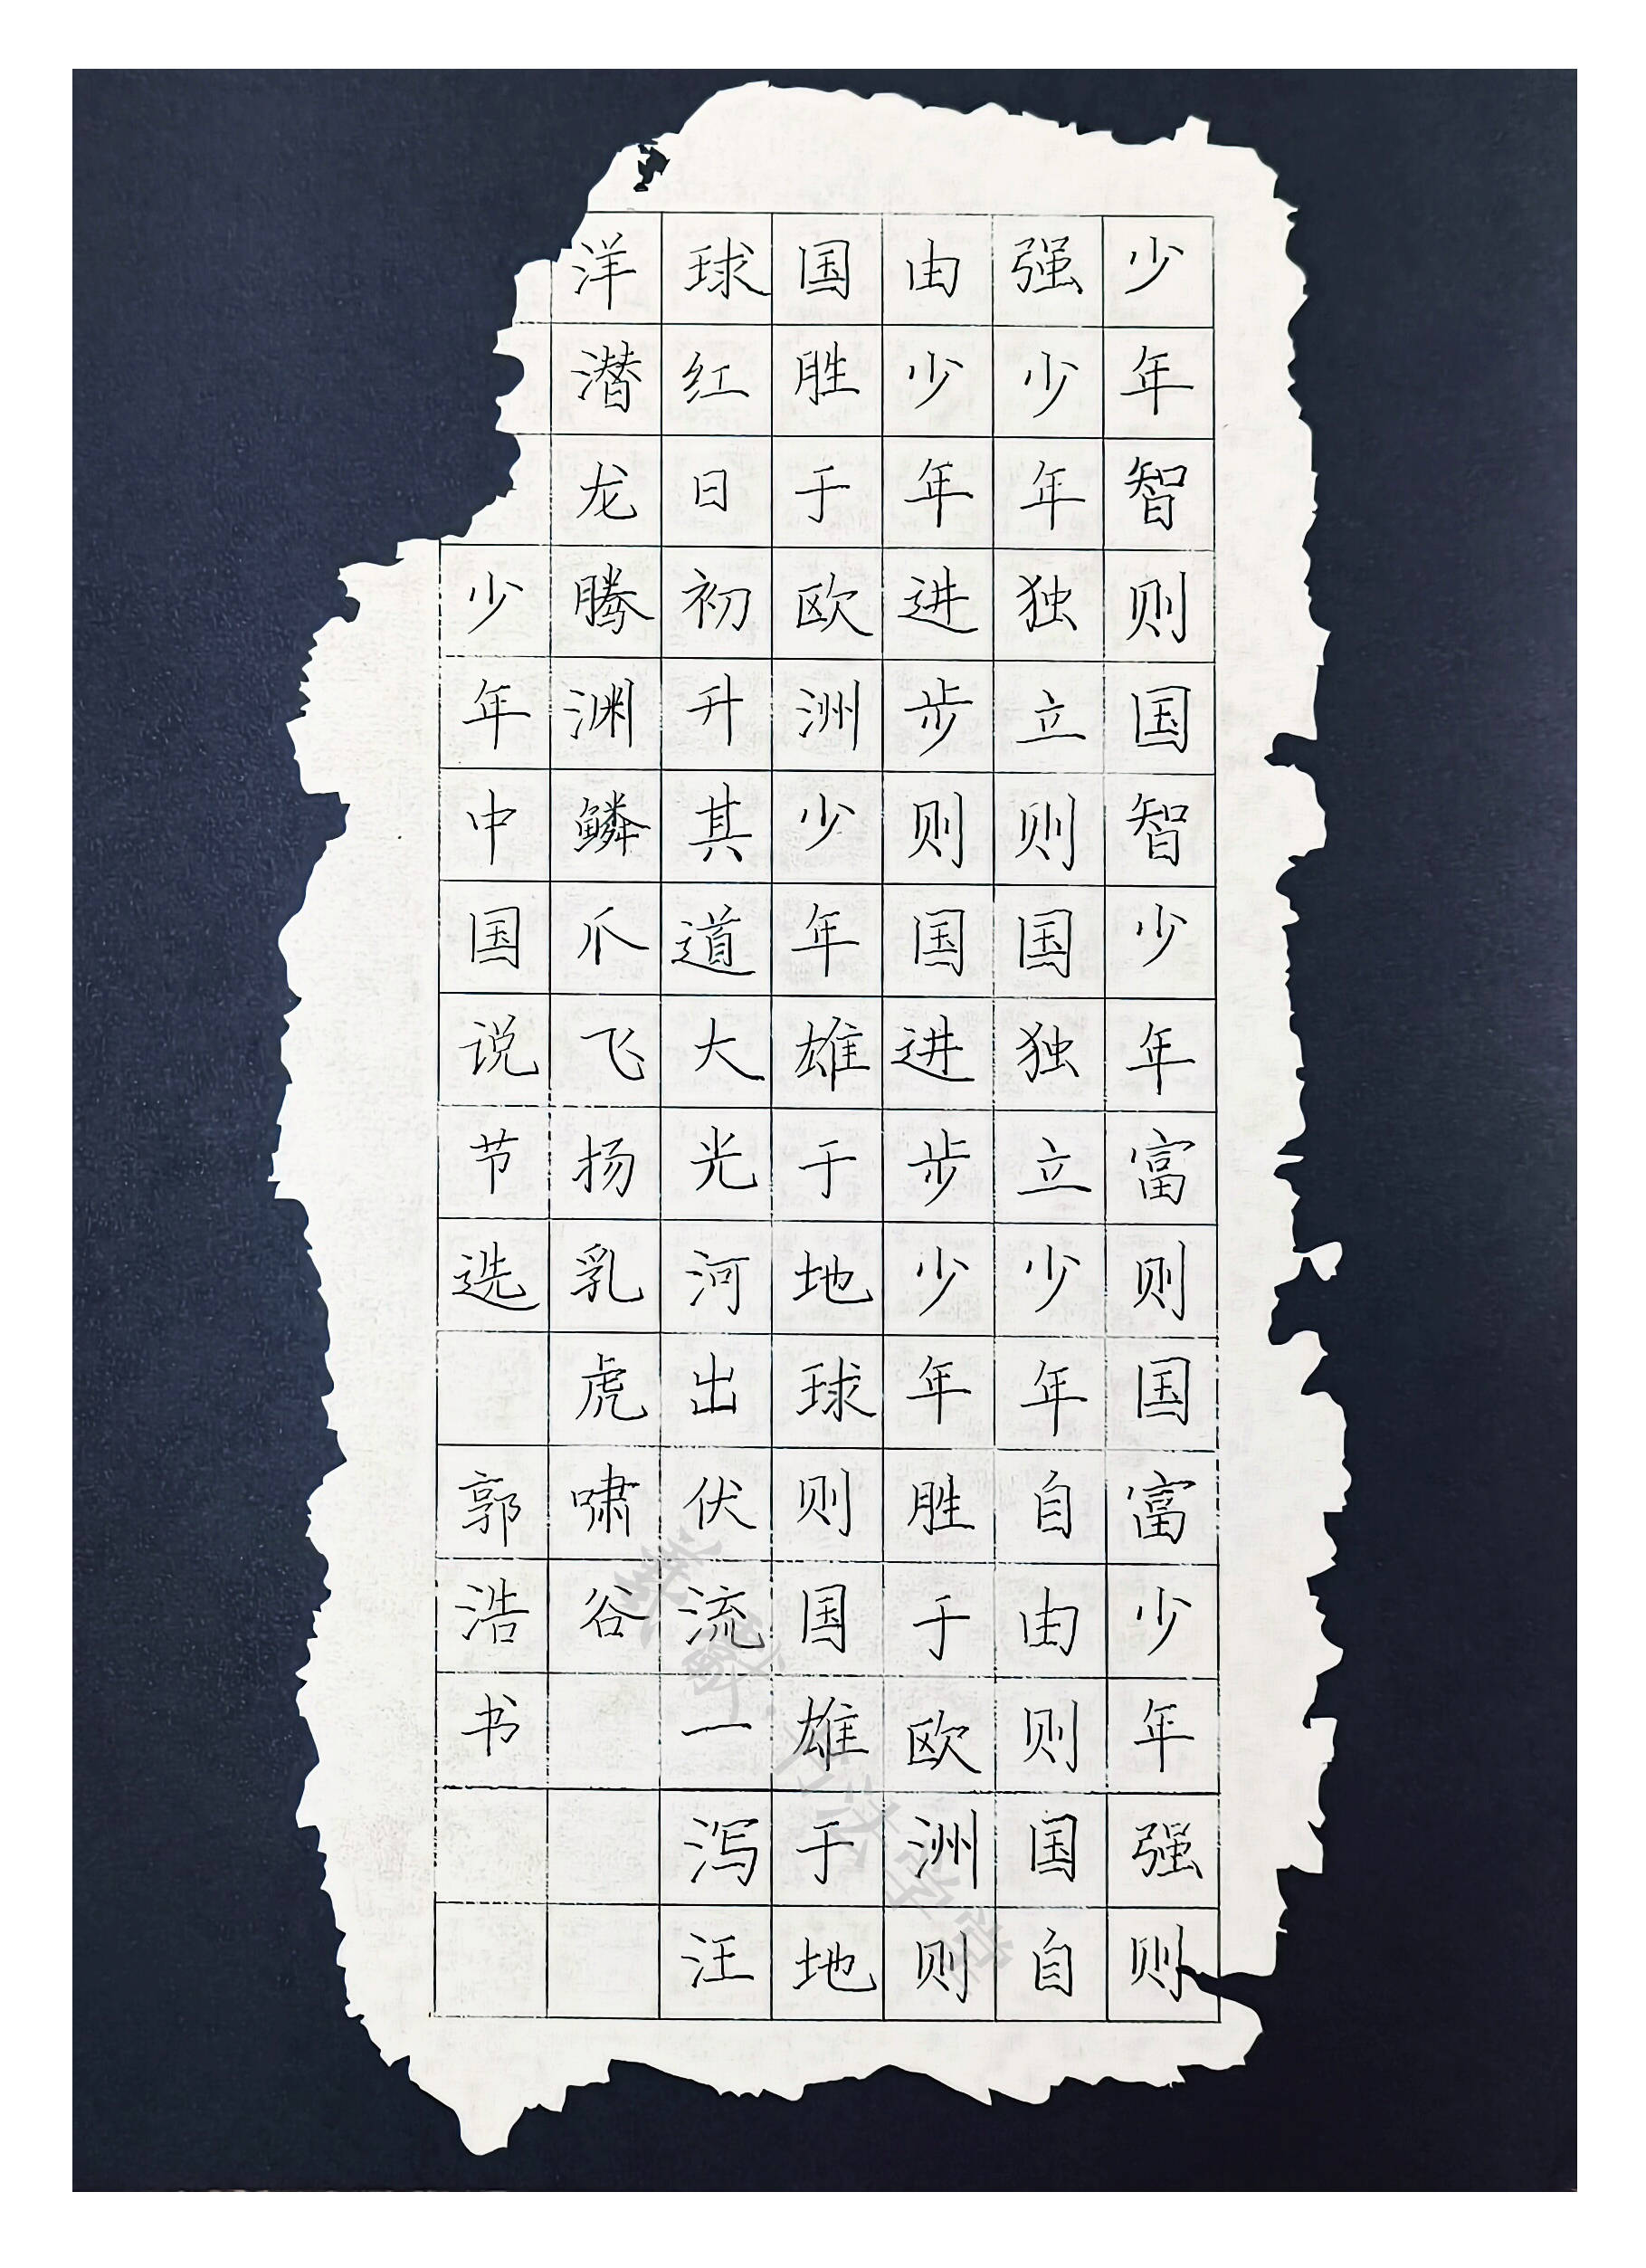 少年智则国智少年富则国富少年强则
强少年独立则国独立少年自由则国自
由少年进步则国进步少年胜于欧洲则
国胜于欧洲少年雄于地球则国雄于地
球红日初升其道大光河出伏流一泻汪
洋潜龙腾渊鳞爪飞扬乳虎啸谷
少年中国说节选 郭浩书